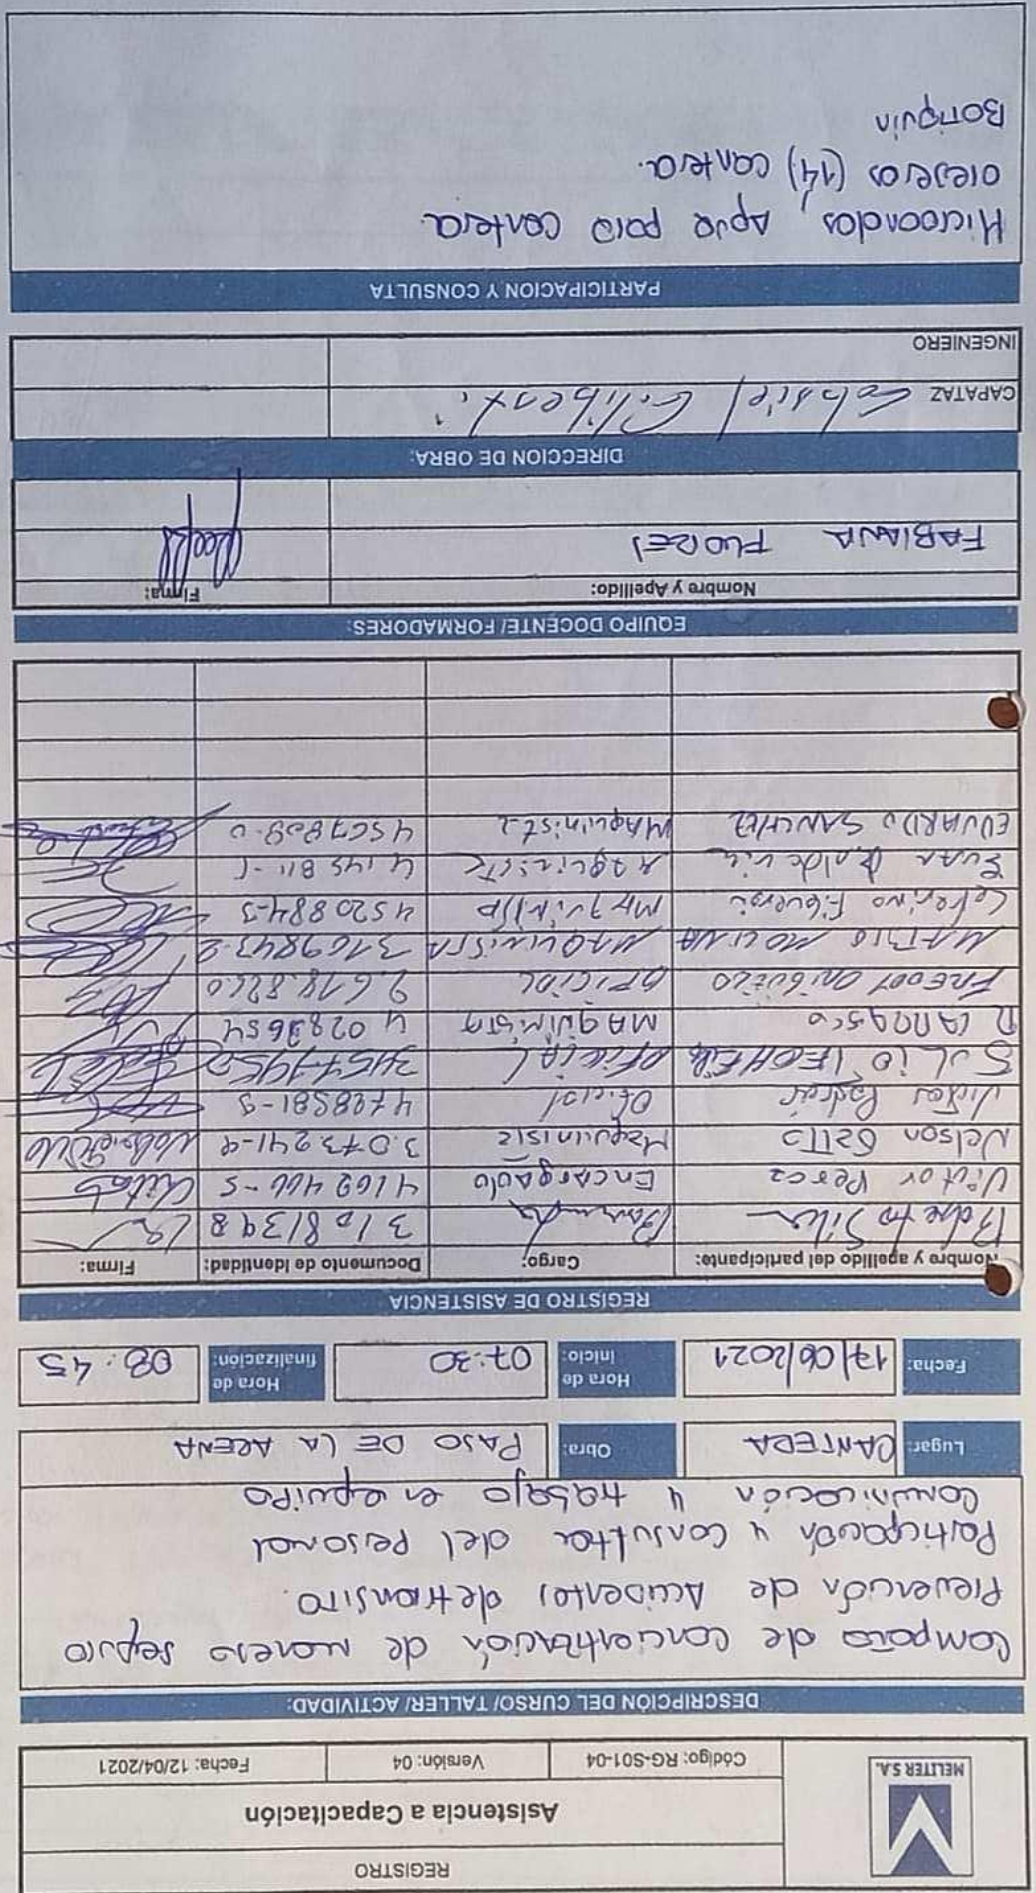 MELITER S.A.
REGISTRO
Asistencia a Capacitación
Código: RG-S01-04 Versión: 04 Fecha: 12/04/2021
DESCRIPCIÓN DEL CURSO/ TALLER/ ACTIVIDAD:
Campaña de concientización de manejo seguro
Prevención de Accidentes de transito.
Participación y consulta del Personal
Comunicación y trabajo en equipo
Lugar: CANTERA Obra: PASO DE LA ARENA
Fecha: 17/06/2021 Hora de inicio: 07:30 Hora de finalización: 08:45
REGISTRO DE ASISTENCIA
Nombre y apellido del participante: Cargo: Documento de Identidad: Firma:
Roberto Silva 31081398
Victor Perez Encargado 4162466-5
Nelson Maquinista 3.073.241-9
Oficial 4788581-5
JULIO OFICIAL
R CARRASCO MAQUINISTA 40283654
FREDDY OFICIAL
MARIO MOLINA MAQUINISTA 3169843-2
Ceferino Figueroa 4520884-3
Maquinista 4.145811-1
EDUARDO SANCHEZ Maquinista 4567808-0
EQUIPO DOCENTE/ FORMADORES:
Nombre y Apellido: Firma:
FABIANA FLORES
DIRECCION DE OBRA:
CAPATAZ Gabriel Giliberti
INGENIERO
PARTICIPACION Y CONSULTA
Microondas, Agua para cantera
(14) cantera.
Botiquin